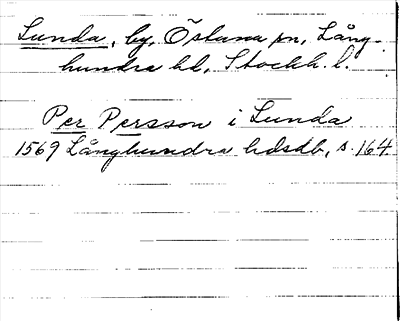 Lunda, by, Östuna sn, Lång-
hundra hd, Stockh. l.
Per Persson i Lunda
1569 Långhundra hdsdb, s. 164